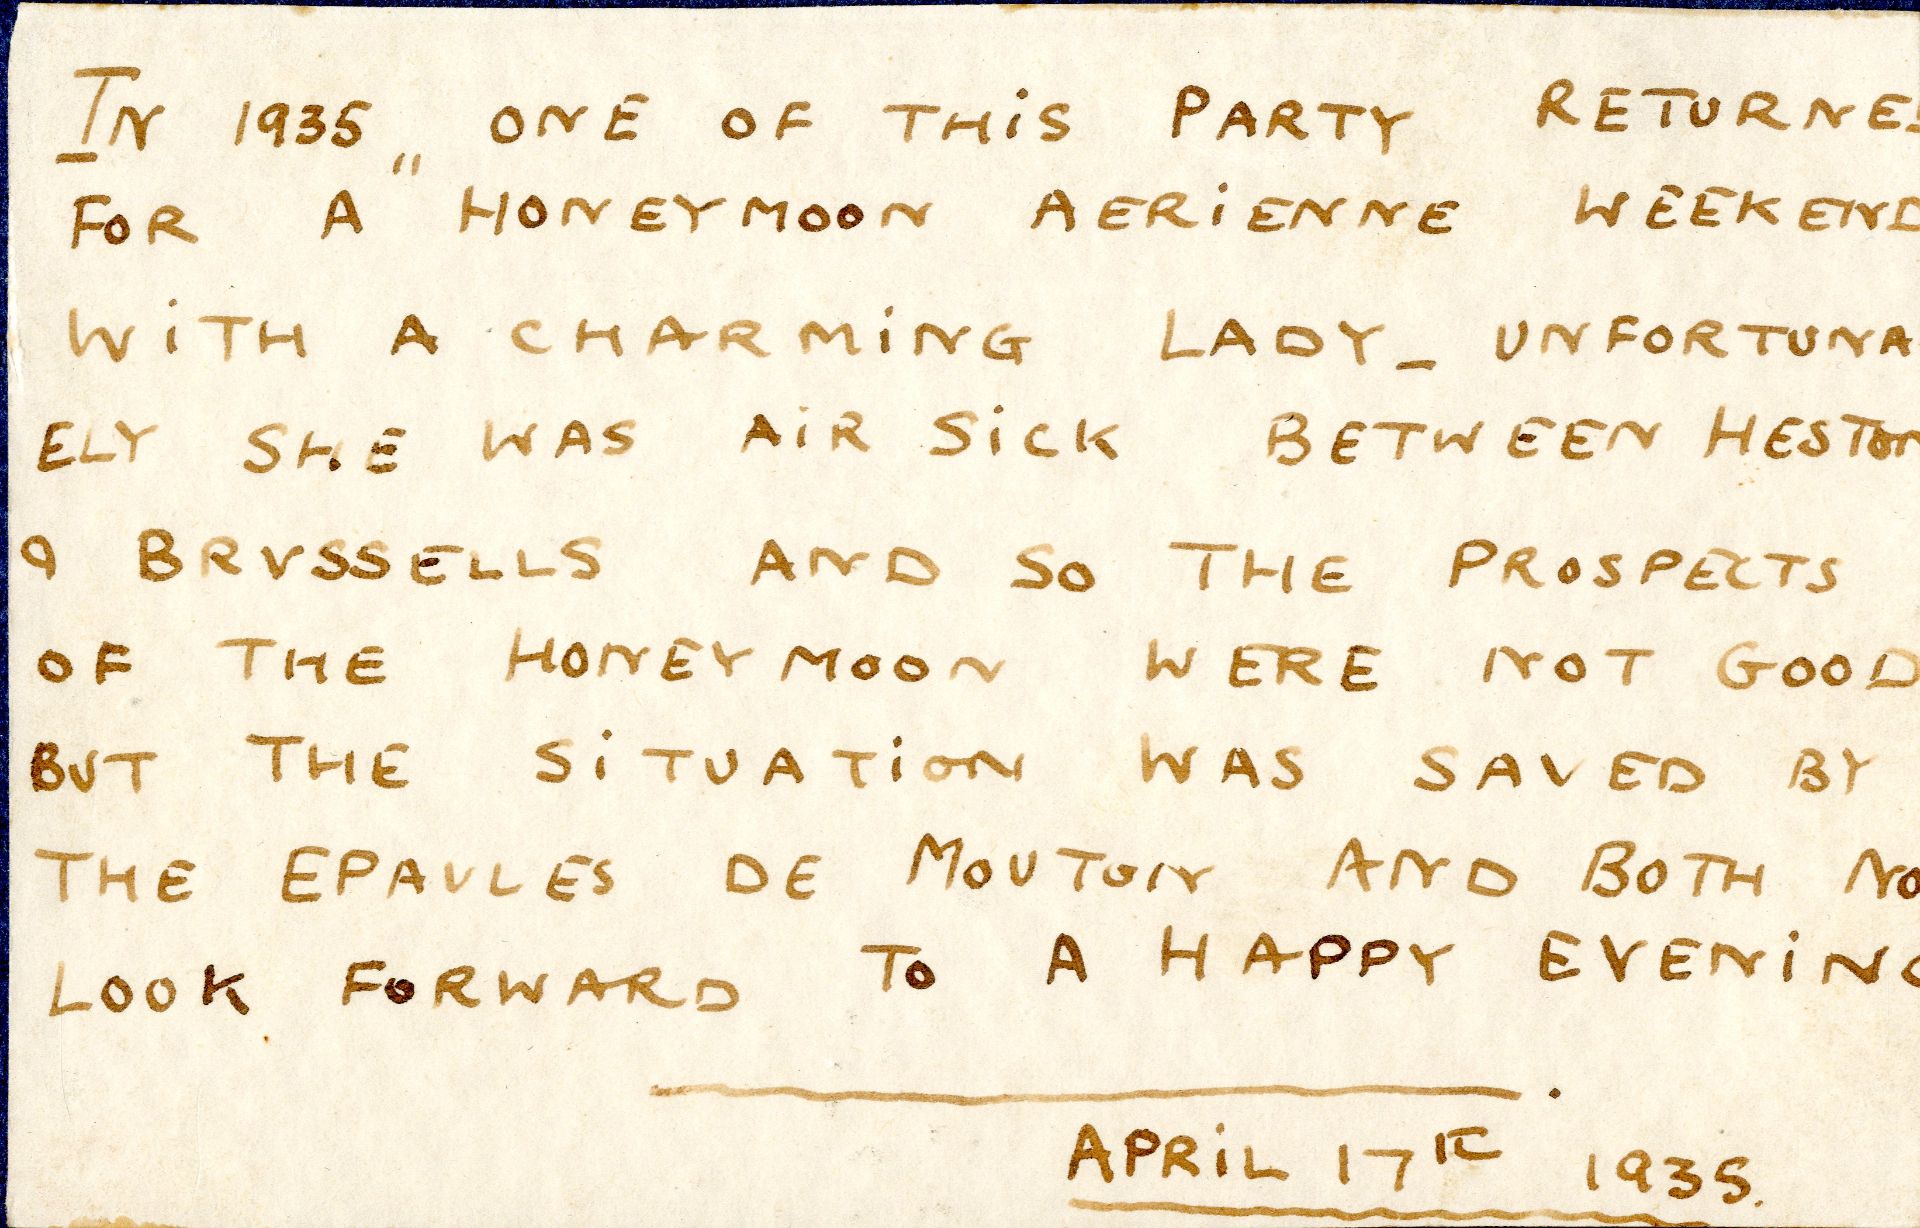 IN 1935 ONE OF THIS PARTY RETURNED
FOR A "HONEYMOON AERIENNE WEEKEND
WITH A CHARMING LADY_ UNFORTUNA
ELY SHE WAS AIR SICK BETWEEN HESTON
& BRUSSELLS AND SO THE PROSPECTS
OF THE HONEYMOON WERE NOT GOOD
BUT THE SITUATION WAS SAVED BY
THE EPAULES DE MOUTON AND BOTH NO
LOOK FORWARD TO A HAPPY EVENING
APRIL 17TH 1935.